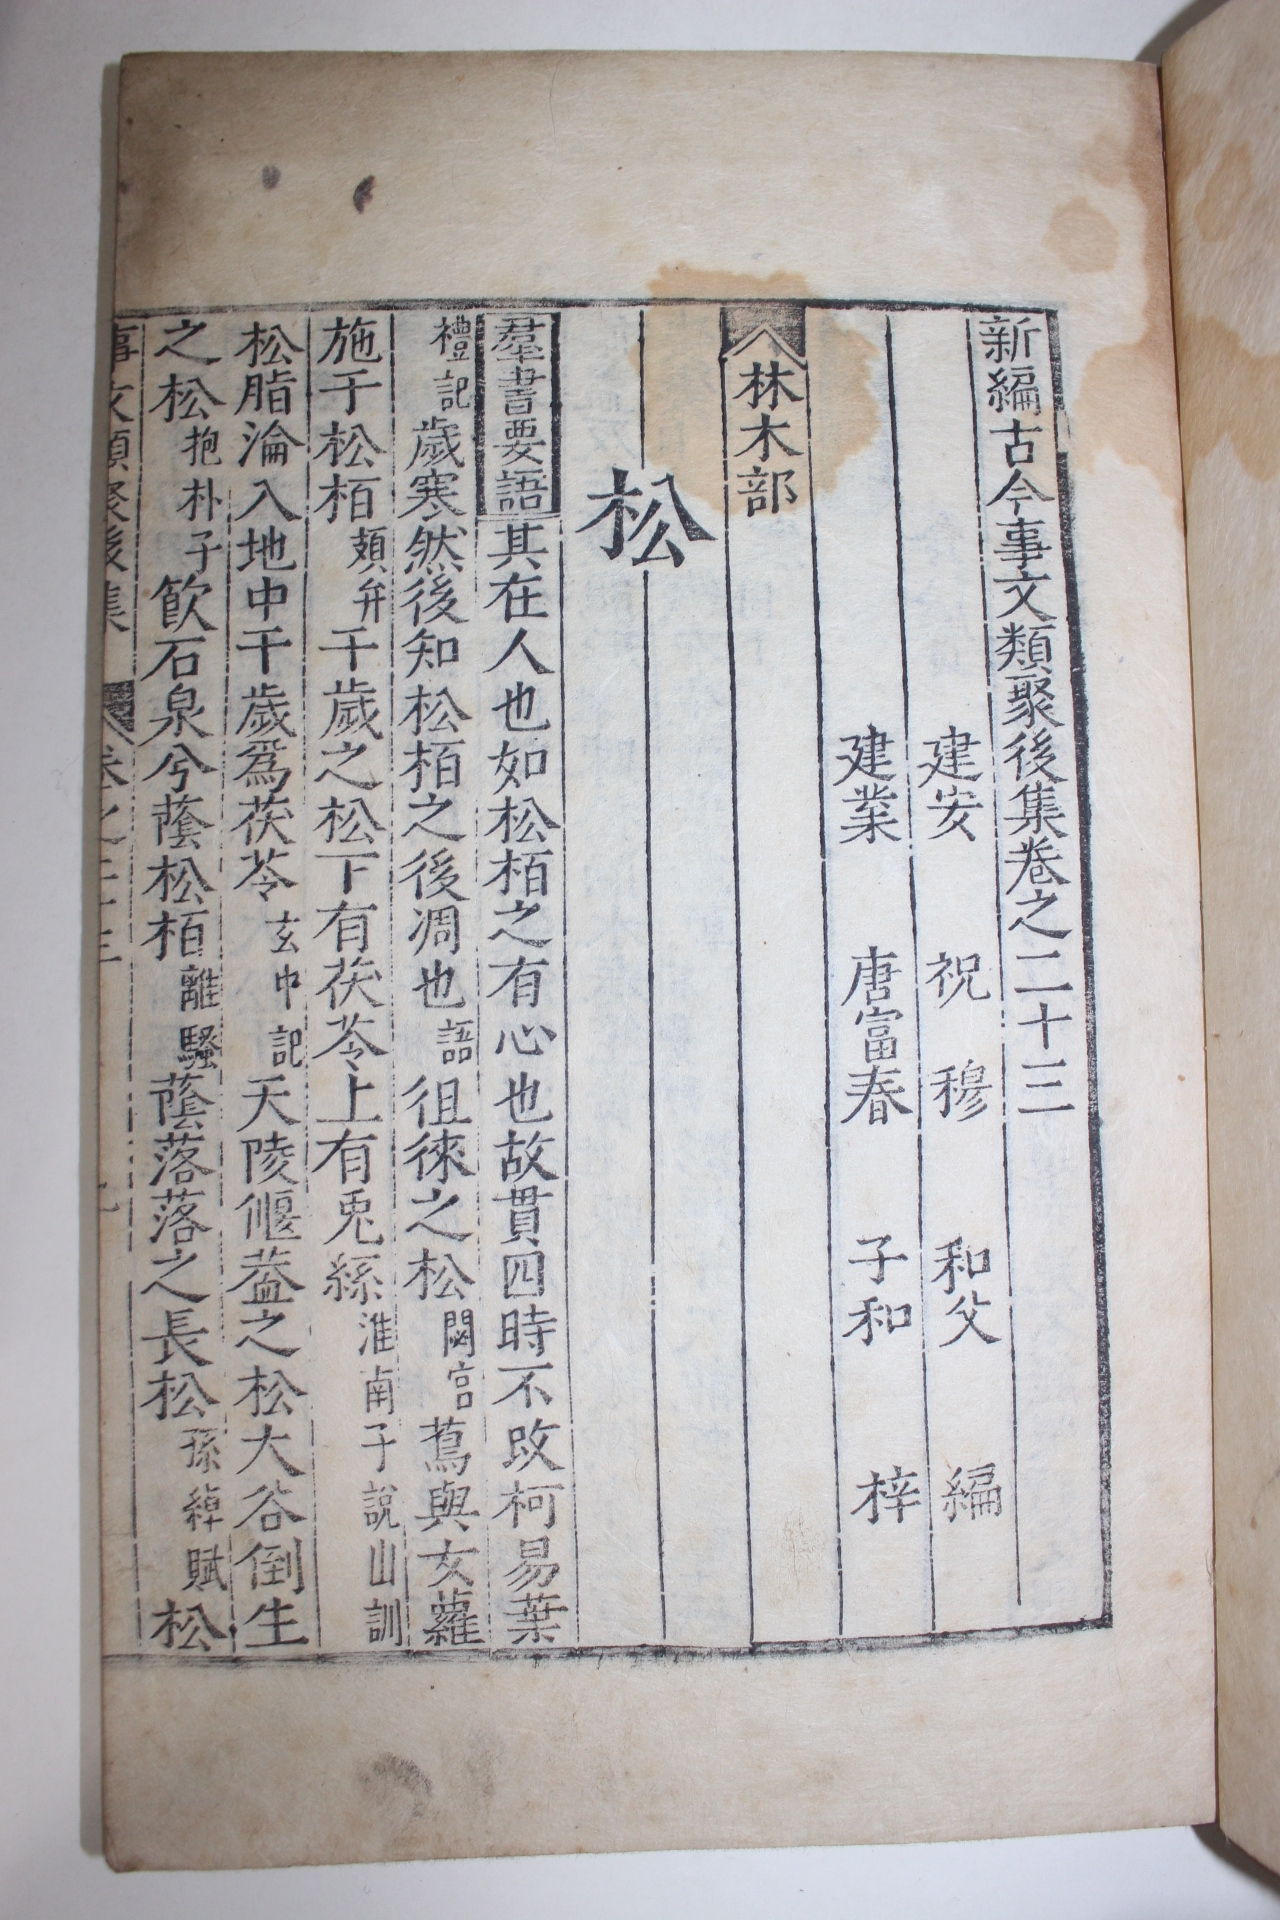 新編古今事文類聚後集卷之二十三
建安 祝穆 和父 編
建業 唐富春 子和 梓
林木部
松
羣書要語其在人也如松栢之有心也故貫四時不改柯易葉
禮記歲寒然後知松栢之後凋也語徂徠之松閟宮蔦與女蘿
施于松栢頍弁千歲之松下有茯苓上有兎絲淮南子說山訓
松脂淪入地中千歲爲茯苓玄中記天陵偃葢之松大谷倒生
之松抱朴子飮石泉兮蔭松栢離騷蔭落落之長松孫綽賦松
事文類聚後集 卷之二十三